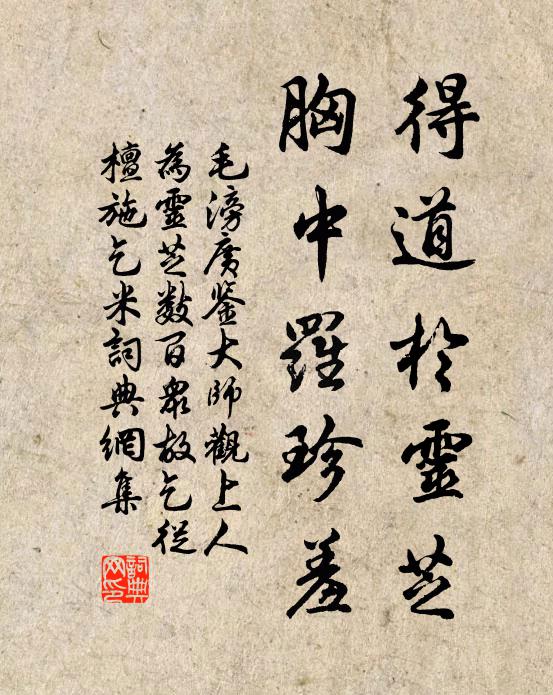 得道於靈芝
胸中羅珍羞
毛滂廣鑒大師觀上人
為靈芝數百眾故乞從
檀施乞米詞典網集
詞典网印